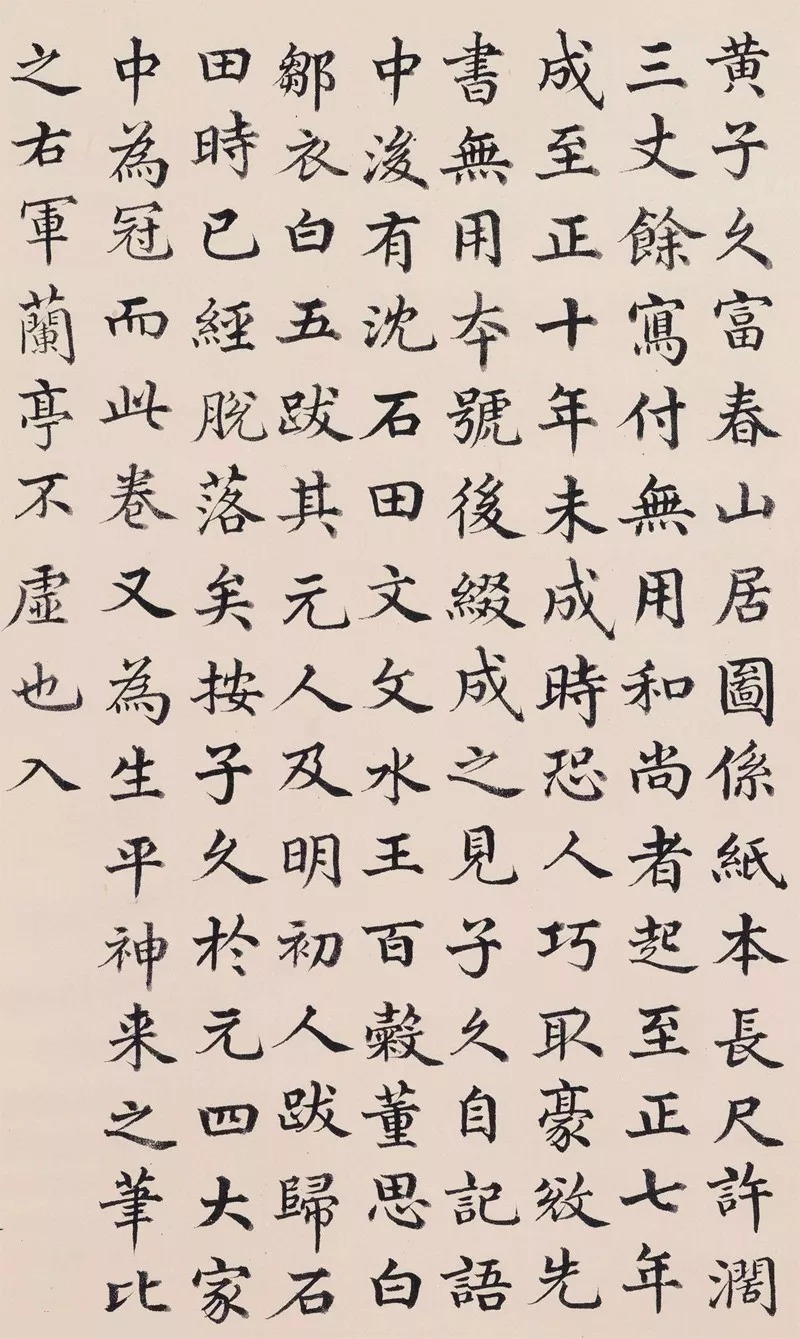 黄子久富春山居圖係紙本長尺許濶
三丈餘寫付無用和尚者起至正七年
成至正十年未成時恐人巧取豪敚先
書無用夲號後綴成之見子久自記語
中後有沈石田文文水王百穀董思白
鄒衣白五跋其元人及明初人跋歸石
田時已經脫落矣按子久於元四大家
中為冠而此卷又為生平神来之筆比
之右軍蘭亭不虛也入